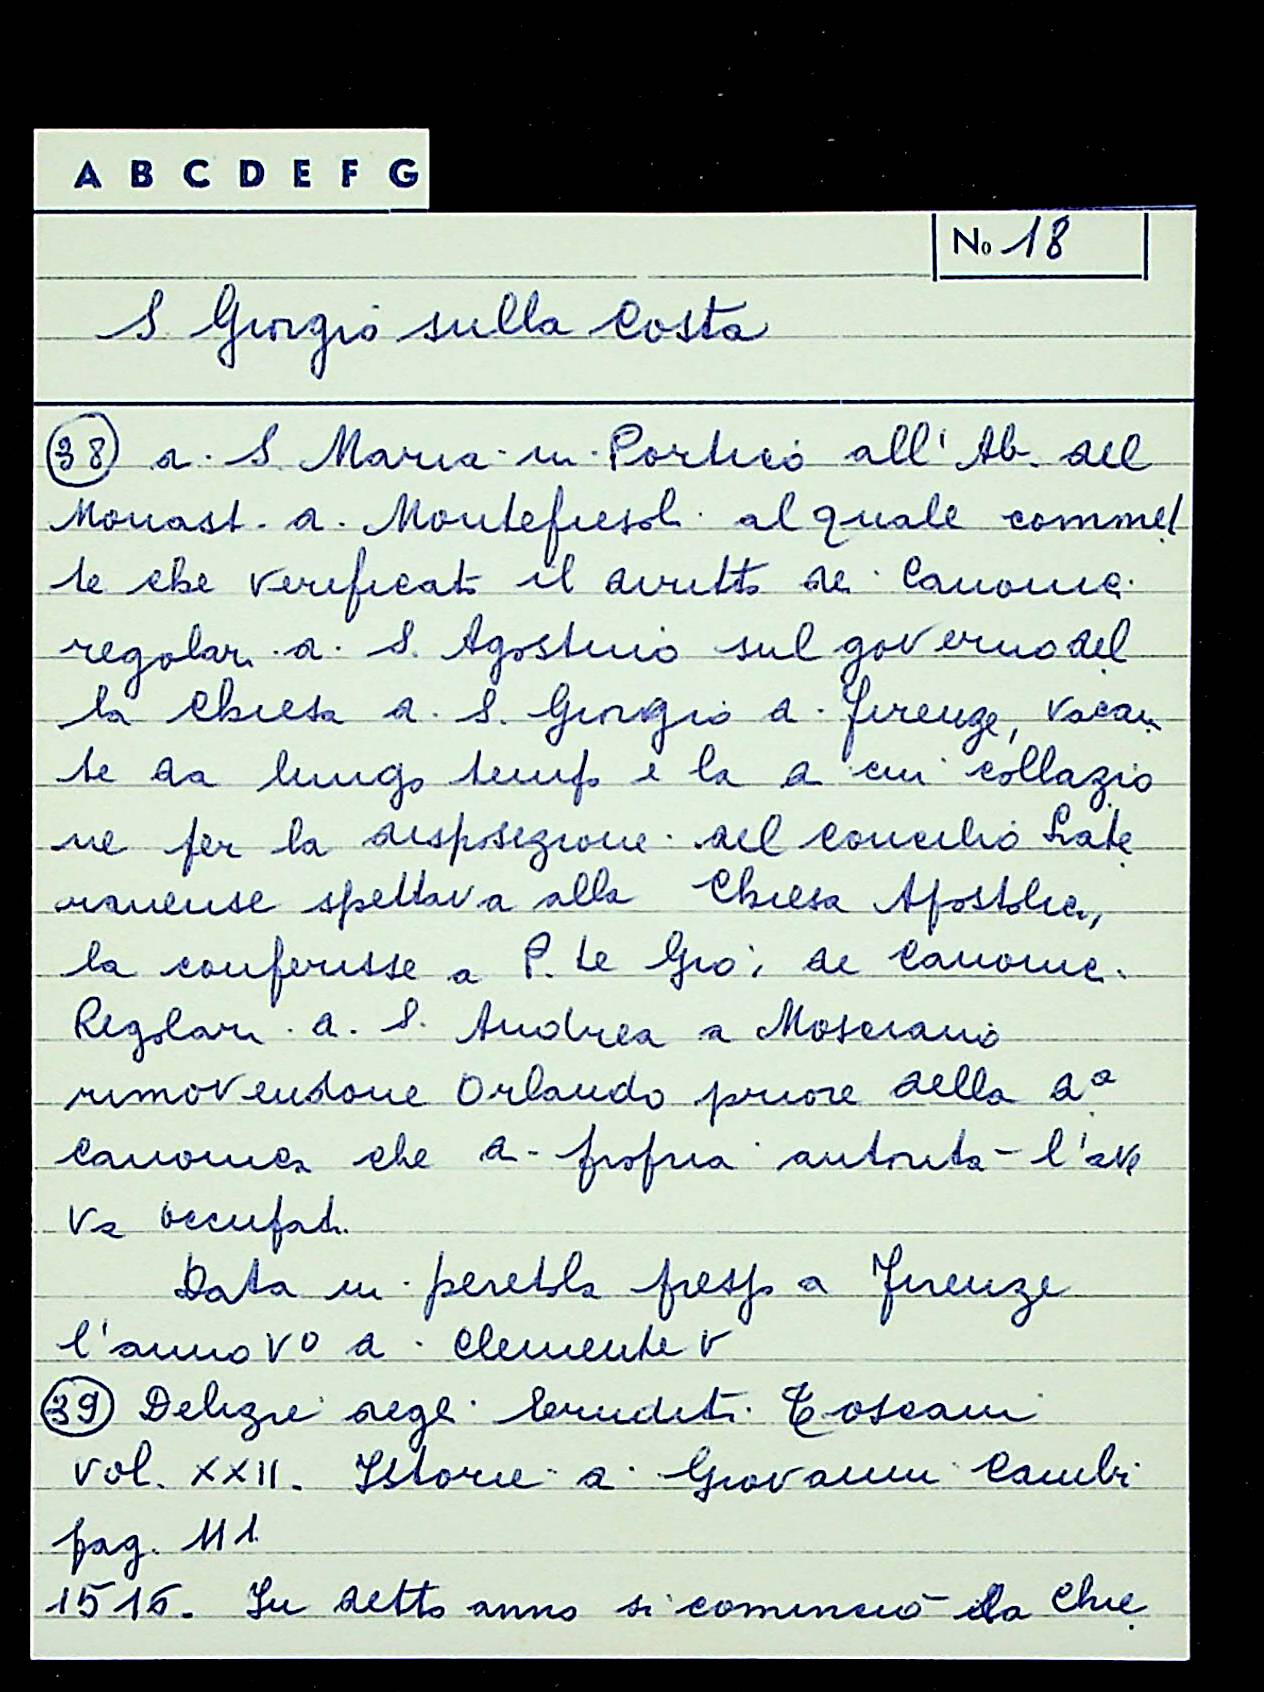 A B C D E F G
No 18
S. Giorgio sulla Costa
38 di S. Maria in Portico all' Ab. del
Monast. di Montefiesoli al quale commet
te che verificato il diritto dei Canonici
regolari di S. Agostino sul governo del
la Chiesa di S. Giorgio di Firenze, vacan
te da lungo tempo e la di cui collazio
ne per la disposizione del concilio Late
ranense spettava alla Chiesa Apostolica,
la conferisse a P. te Gio: dei Canonici
Regolari di S. Andrea a Mosciano
rimovendone Orlando priore della da
canonica che di propria autorità l'ave
va occupata.
Data in peretola presso a Firenze
l'anno Vo di Clemente V
39 Delizie degli Eruditi Toscani
vol. XXII. Istorie di Giovanni Cambi
pag. 111
1515. In detto anno si cominciò la Chie